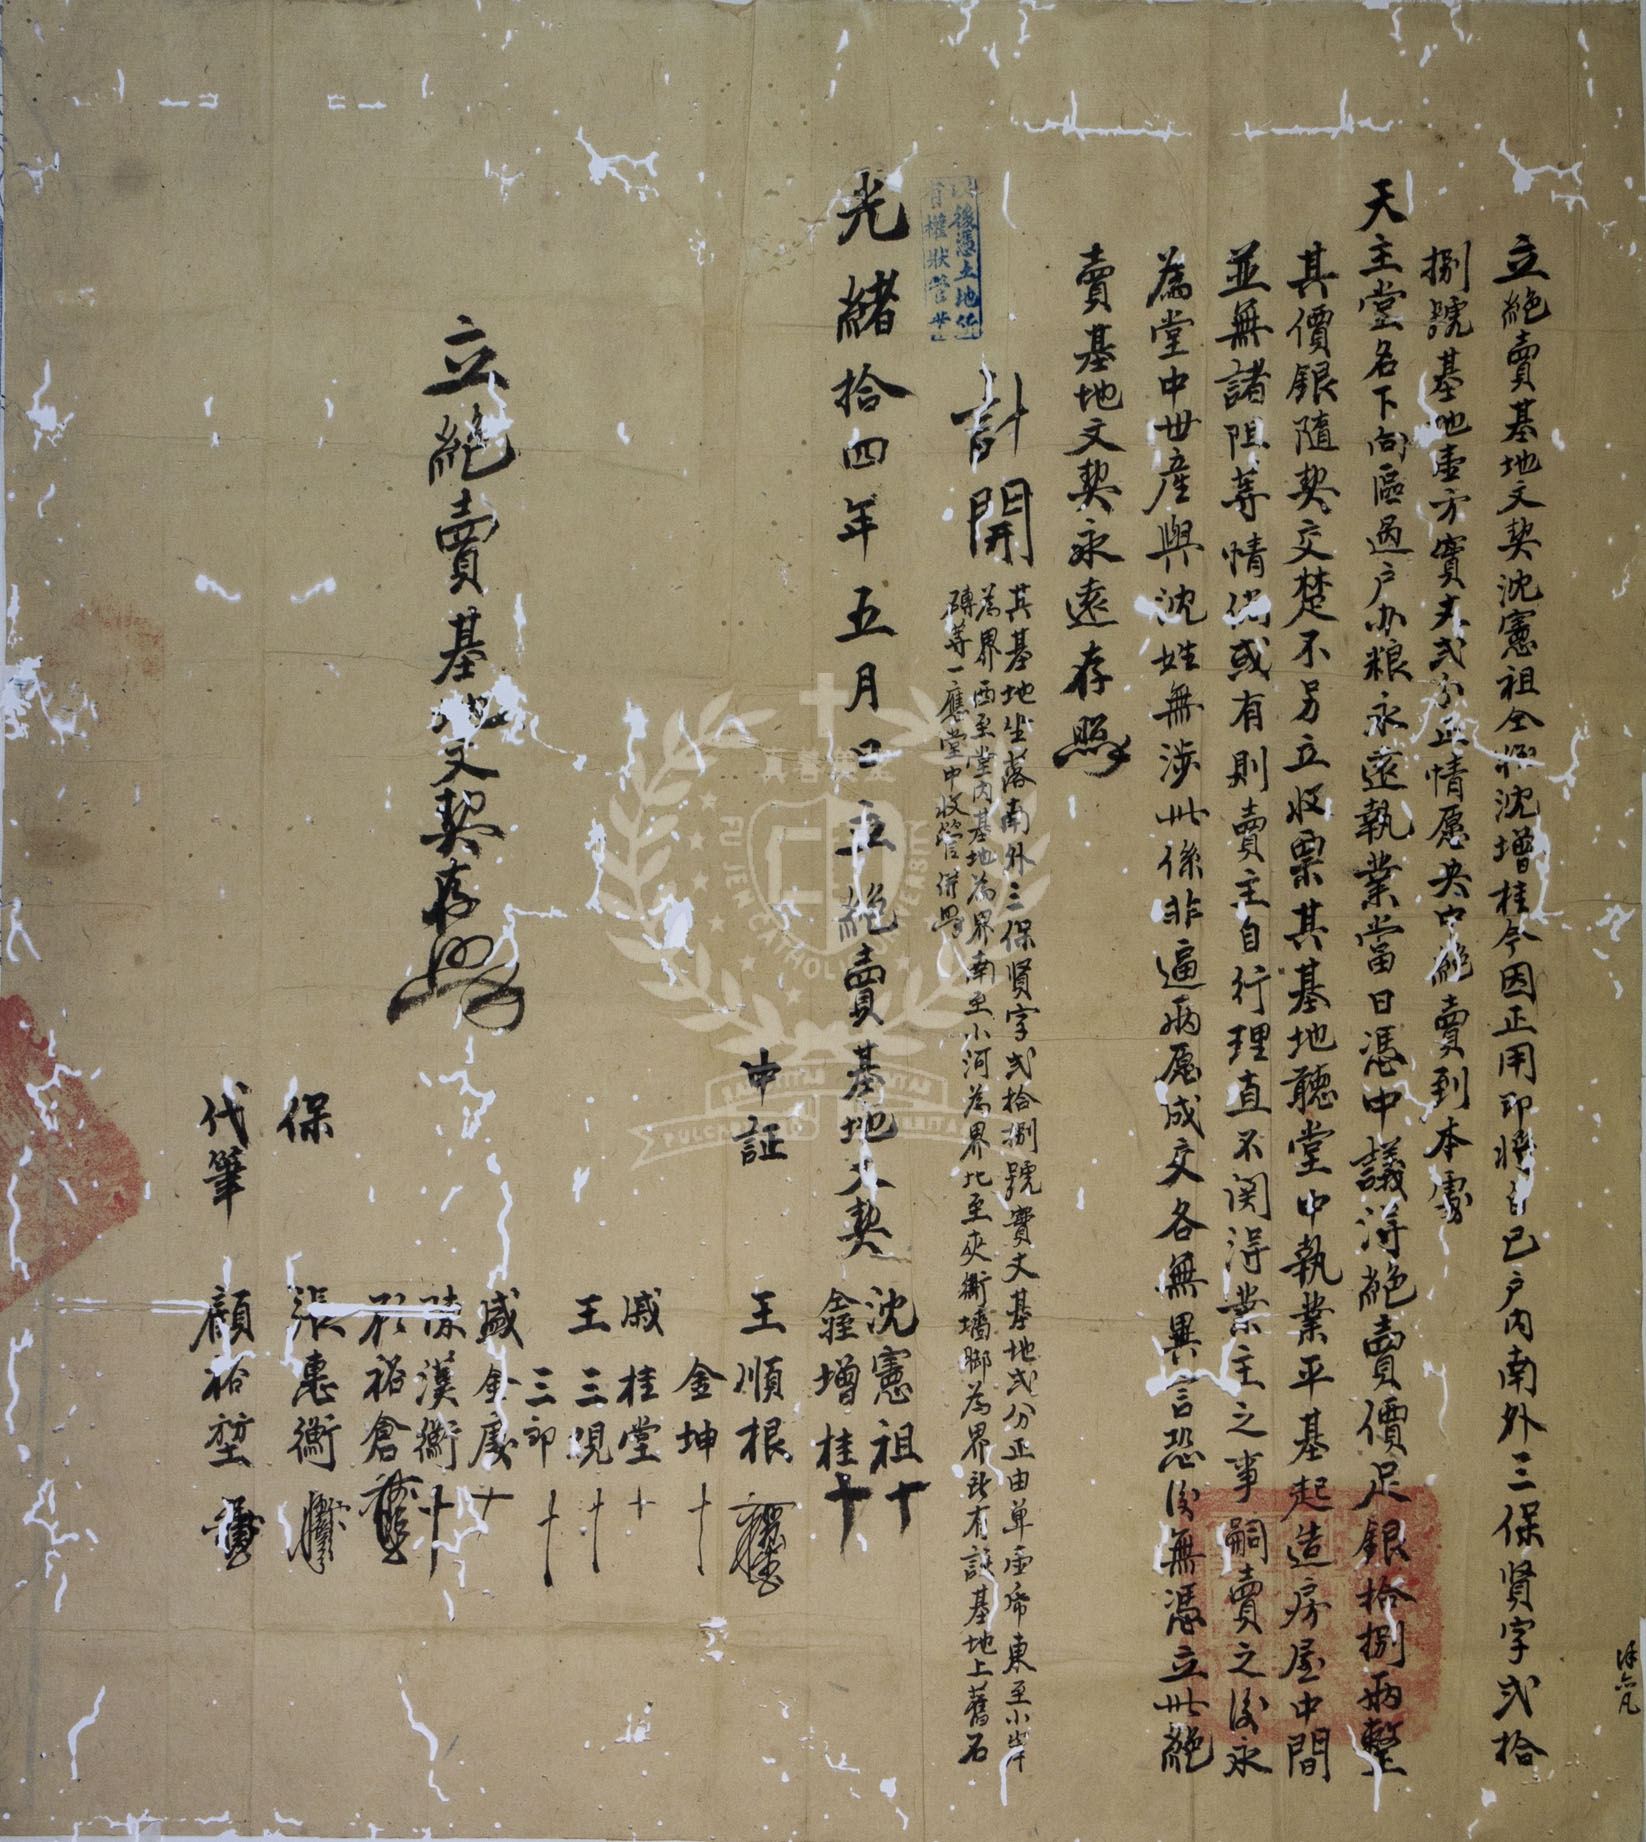 立絕賣基地文契沈憲祖仝姪沈增桂今因正用即將自己戶內南外三保賢字弍拾
捌號基地壹方實丈弍分正情愿央中絕賣到本處
天主堂名下向區過户办粮永遠執業當日憑中議得絕賣價足銀拾捌両整
其價銀隨契交楚不另立收票其基地聽堂中執業平基起造房屋中間
並無諸阻等情倘或有則賣主自行理直不関得業主之事嗣賣之後永
為堂中世産與沈姓無涉此係非逼両愿成交各無異言恐後無憑立此絕
賣基地文契永遠存照
計開
其基地坐落南外三保賢字弍拾捌號實丈基地弍分正由單壹帋東至小岸
為界西至堂內基地為界南至小河為界北至夾衖墻脚為界所有該基地上舊石
磚等一應堂中收管併照
後憑土地所
有權狀管業
光緒拾四年五月 日立絕賣基地文契 沈憲祖 十
增桂 十
中証 王順根
金坤 十
戚桂堂 十
王三觀 十
三郎 十
戚金慶 十
陳漢衡 十
裕倉
保 張惠衡
代筆 顧裕堃
立絕賣基地文契存照
FU JEN CATHOLIC UNIVERSITY